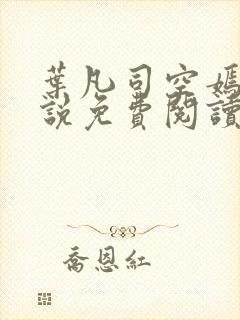 葉凡司空嫣
說免費閱讀
喬恩紅